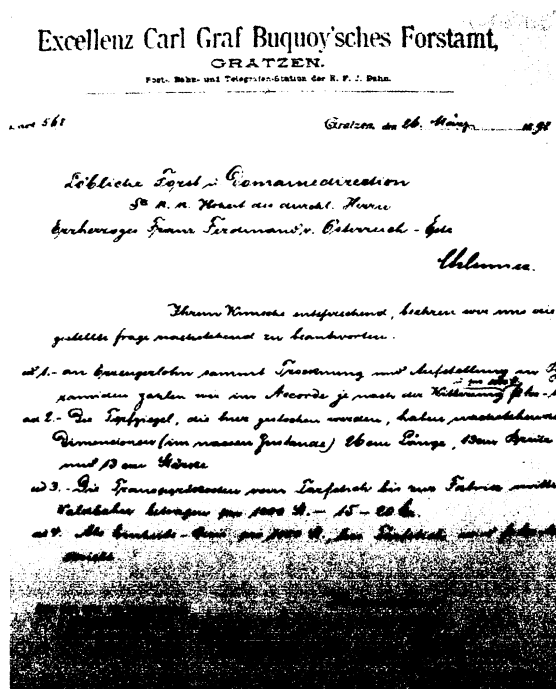 Excellenz Carl Graf Buquoy'sches Forstamt,
GRATZEN.
Post-, Bahn- und Telegrafen-Station der K. F. J. Bahn.
568 Gratzen, den 26. März 1898
Löbliche Forst u. Domänedirection
Sr K. K. Hoheit des durchl. Herrn
Erzherzoges Franz Ferdinand v. Österreich - Este
Chlumec.
Ihrem Wunsche entsprechend, beehren wir uns die
gestellte frage nachstehend zu beantworten.
ad 1.- an Erzeugerlohn sammt Trocknung und Aufstellung in
zahlen wir im Accorde je nach der Witterung
ad 2.- Die Torfziegel, die hier gestochen werden, haben nachstehende
Dimensionen (im nassen Zustande) 26 cm Länge, 13 cm Breite
und 13 cm Stärke
ad 3.- Die Transportkosten vom Torfstich bis zur Fabrik mittelst
betragen per 1000 St. - 15 - 20 kr.
ad 4. Als per 1000 St. Torfstich wird